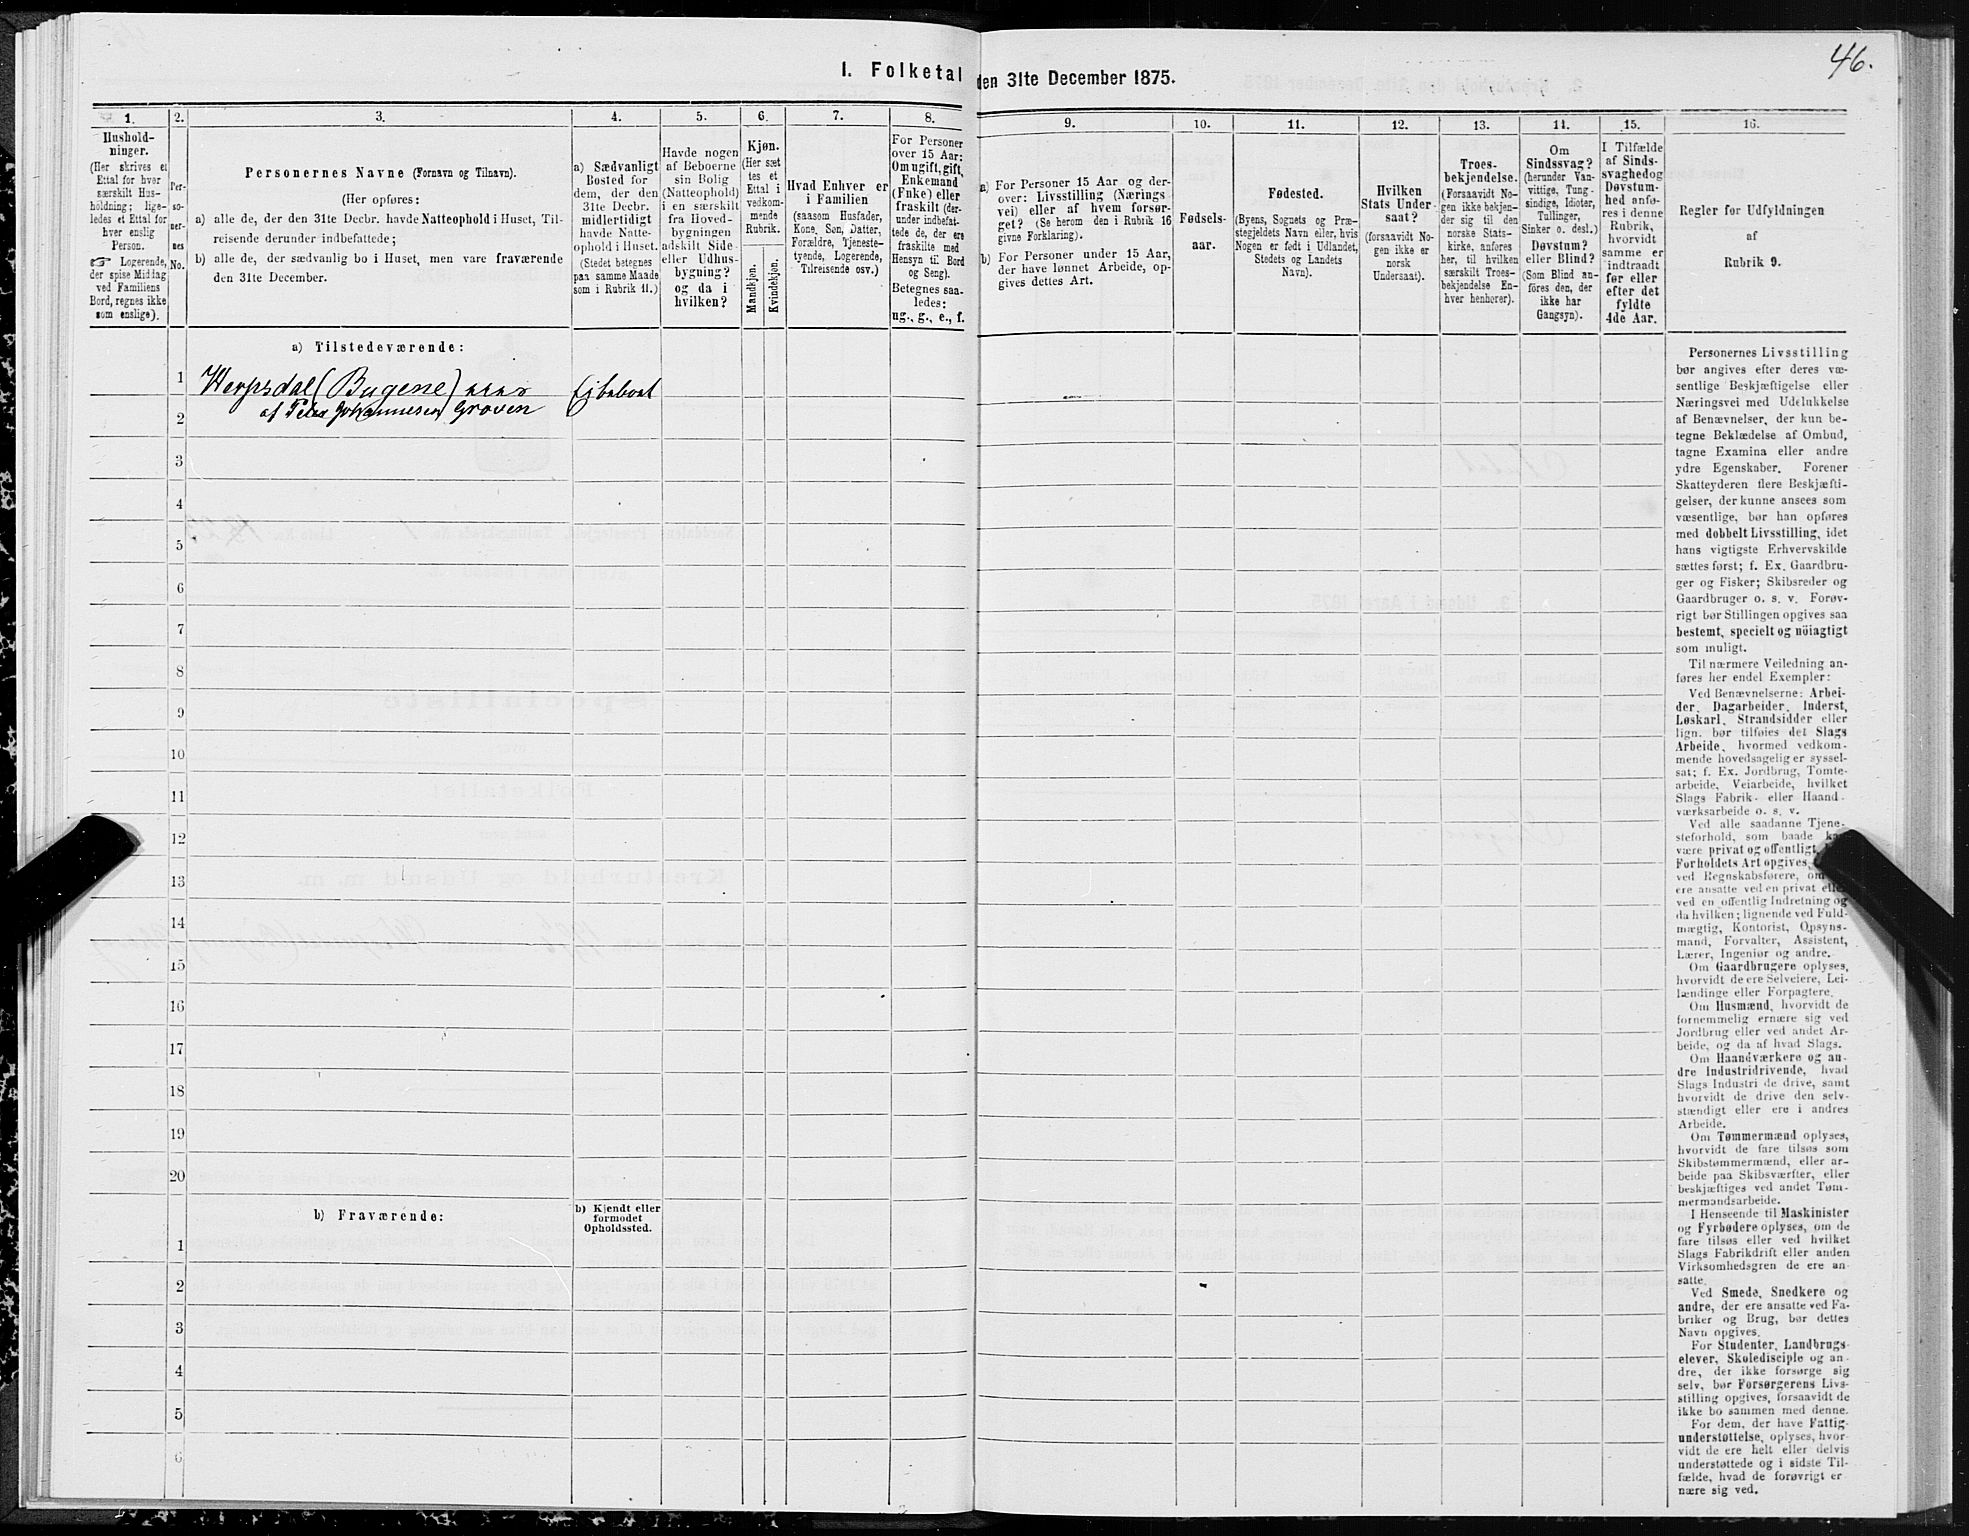 46.
I. Folketal den 31te December 1875.
1.
Hushold-
ninger.
(Her skrives et
Ettal for hver
særskilt Hus-
holdning; lige-
ledes et Ettal for
hver enslig
Person.
☞ Logerende,
der spise Middag
ved Familiens
Bord, regnes ikke
som enslige).
2.
Per-
so-
ner-
nes
No.
3.
Personernes Navne (Fornavn og Tilnavn).
(Her opføres:
a) alle de, der den 31te Decbr. havde Natteophold i Huset, Til-
reisende derunder indbefattede;
b) alle de, der sædvanlig bo i Huset, men vare fraværende
den 31te December.
4.
a) Sædvanligt
Bosted for
dem, der den
31te Decbr.
midlertidigt
havde Natte-
ophold i Huset.
(Stedet betegnes
paa samme Maade
som i Rubrik 11.)
5.
Havde nogen
af Beboerne
sin Bolig
(Natteophold)
i en særskilt
fra Hoved-
bygningen
adskilt Side-
eller Udhus-
bygning?
og da i
hvilken?
6.
Kjøn.
(Her sæt
tes et
Ettal i
vedkom-
mende
Rubrik.
Mandkjøn.
Kvindekjøn.
7.
Hvad Enhver er
i Familien
(saasom Husfader,
Kone, Søn, Datter,
Forældre, Tjeneste-
tyende, Logerende,
Tilreisende osv.)
8.
For Personer
over 15 Aar:
Om ugift, gift,
Enkemand
(Enke) eller
fraskilt (der-
under indbefat-
tede de, der ere
fraskilte med
Hensyn til Bord
og Seng).
Betegnes saa-
ledes:
ug., g., e., f.
9.
a) For Personer 15 Aar og der-
over: Livsstilling (Nærings
vei) eller af hvem forsør-
get? (Se herom den i Rubrik 16
givne Forklaring).
b) For Personer under 15 Aar,
der have lønnet Arbeide, op-
gives dettes Art.
10.
Fødsels-
aar.
11.
Fødested.
(Byens, Sognets og Præ-
stegjeldets Navn eller, hvis
Nogen er født i Udlandet,
Stedets og Landets
Navn).
12.
Hvilken
Stats Under-
saat?
(forsaavidt No-
gen ikke er
norsk
Undersaat).
13.
Troes-
bekjendelse.
(Forsaavidt No-
gen ikke bekjen-
der sig til den
norske Stats-
kirke, anføres
her, til hvilken
særskilt Troes-
bekjendelse En-
hver henhører).
14.
Om
Sindssvag?
(herunder Van-
vittige, Tung-
sindige, Idioter,
Tullinger,
Sinker o. desl.)
Døvstum?
eller Blind?
(Som Blind an-
föres den, der
ikke har
Gangsyn).
15.
I Tilfælde
af Sinds-
svaghed og
Døvstum-
hed anfø-
res i denne
Rubrik,
hvorvidt
samme er
indtraadt
før eller
efter det
fyldte
4de Aar.
16.
Regler for Udfyldningen
af
Rubrik 9.
a) Tilstedeværende:
1 Herpsdal (Bugene) Ejbeboet
2 af Peter Johannesen Groven
3
4
5
6
7
8
9
10
11
12
13
14
15
16
17
18
19
20
b) Fraværende:
b) Kjendt eller
formodet
Opholdssted.
1
2
3
4
5
6
Personernes Livsstilling
bør angives efter deres væ-
sentlige Beskjæftigelse eller
Næringsvei med Udelukkelse
af Benævnelser, der kun be-
tegne Beklædelse af Ombud,
tagne Examina eller andre
ydre Egenskaber. Forener
Skatteyderen flere Beskjæfti-
gelser, der kunne ansees som
væsentlige, bør han opføres
med dobbelt Livsstilling, idet
hans vigtigste Erhvervskilde
sættes først; f. Ex. Gaardbru-
ger og Fisker; Skibsreder og
Gaardbruger o. s. v. Forøv-
rigt bør Stillingen opgives saa
bestemt, specielt og nöiagtigt
som muligt.
Til nærmere Veiledning an-
føres her endel Exempler:
Ved Benævnelserne: Arbei-
der, Dagarbeider, Inderst,
Løskarl, Strandsidder eller
lign. bør tilføies det Slags
Arbeide, hvormed vedkom-
mende hovedsagelig er syssel-
sat; f. Ex. Jordbrug, Tomte-
arbeide, Veiarbeide, hvilket
Slags Fabrik- eller Haand-
værksarbeide o. s. v.
Ved alle saadanne Tjene-
steforhold, som baade
være privat og offentligt,
Forholdets Art opgives,
ved Regnskabsførere, om
ere ansatte ved en privat eller
ved en offentlig Indretning og
da hvilken; lignende ved Fuld-
mægtig, Kontorist, Opsyns-
mand, Forvalter, Assistent,
Lærer, Ingeniør og andre.
Om Gaardbrugere oplyses,
hvorvidt de ere Selveiere, Lei-
lændinge eller Forpagtere.
Om Husmænd, hvorvidt de
fornemmelig ernære sig ved
Jordbrug eller ved andet Ar-
beide, og da af hvad Slags.
Om Haandværkere og an-
dre Industridrivende, hvad
Slags Industri de drive, samt
hvorvidt de drive den selv-
stændigt eller ere i andres
Arbeide.
Om Tømmermænd oplyses,
hvorvidt de fare tilsøs som
Skibstømmermænd, eller ar-
beide paa Skibsværfter, eller
beskjæftiges ved andet Tøm-
mermandsarbeide.
I Henseende til Maskinister
og Fyrbødere oplyses, om de
fare tilsøs eller ved hvilket
Slags Fabrikdrift eller anden
Virksomhedsgren de ere an-
satte.
Ved Smede, Snedkere og
andre, der ere ansatte ved Fa-
briker og Brug, bør dettes
Navn opgives.
For Studenter, Landbrugs-
elever, Skoledisciple og an-
dre, der ikke forsørge sig
selv, bør Forsørgerens Livs-
stilling opgives, forsaavidt de
ikke bo sammen med denne.
For dem, der have Fattig-
understøttelse, oplyses, hvor-
vidt de ere helt eller delvis
understøttede og i sidste Til-
fælde, hvad de forøvrigt er
nære sig ved.